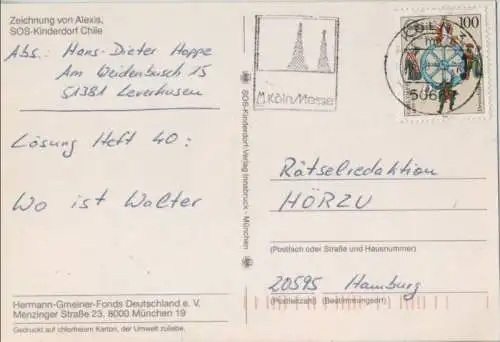 Zeichnung von Alexis,
SOS-Kinderdorf Chile
Abs.: Hans-Dieter Hoppe
Am Weidenbusch 15
51381 Leverkusen
Lösung Heft 40:
Wo ist Walter
Hermann-Gmeiner-Fonds Deutschland e. V.
Menzinger Straße 23, 8000 München 19
Gedruckt auf chlorfreiem Karton, der Umwelt zuliebe.
SOS-Kinderdorf-Verlag Innsbruck - München
Köln/Messe
KÖLN
100
Rätselredaktion
HÖRZU
(Postfach oder Straße und Hausnummer)
20595 Hamburg
(Postleitzahl) (Bestimmungsort)